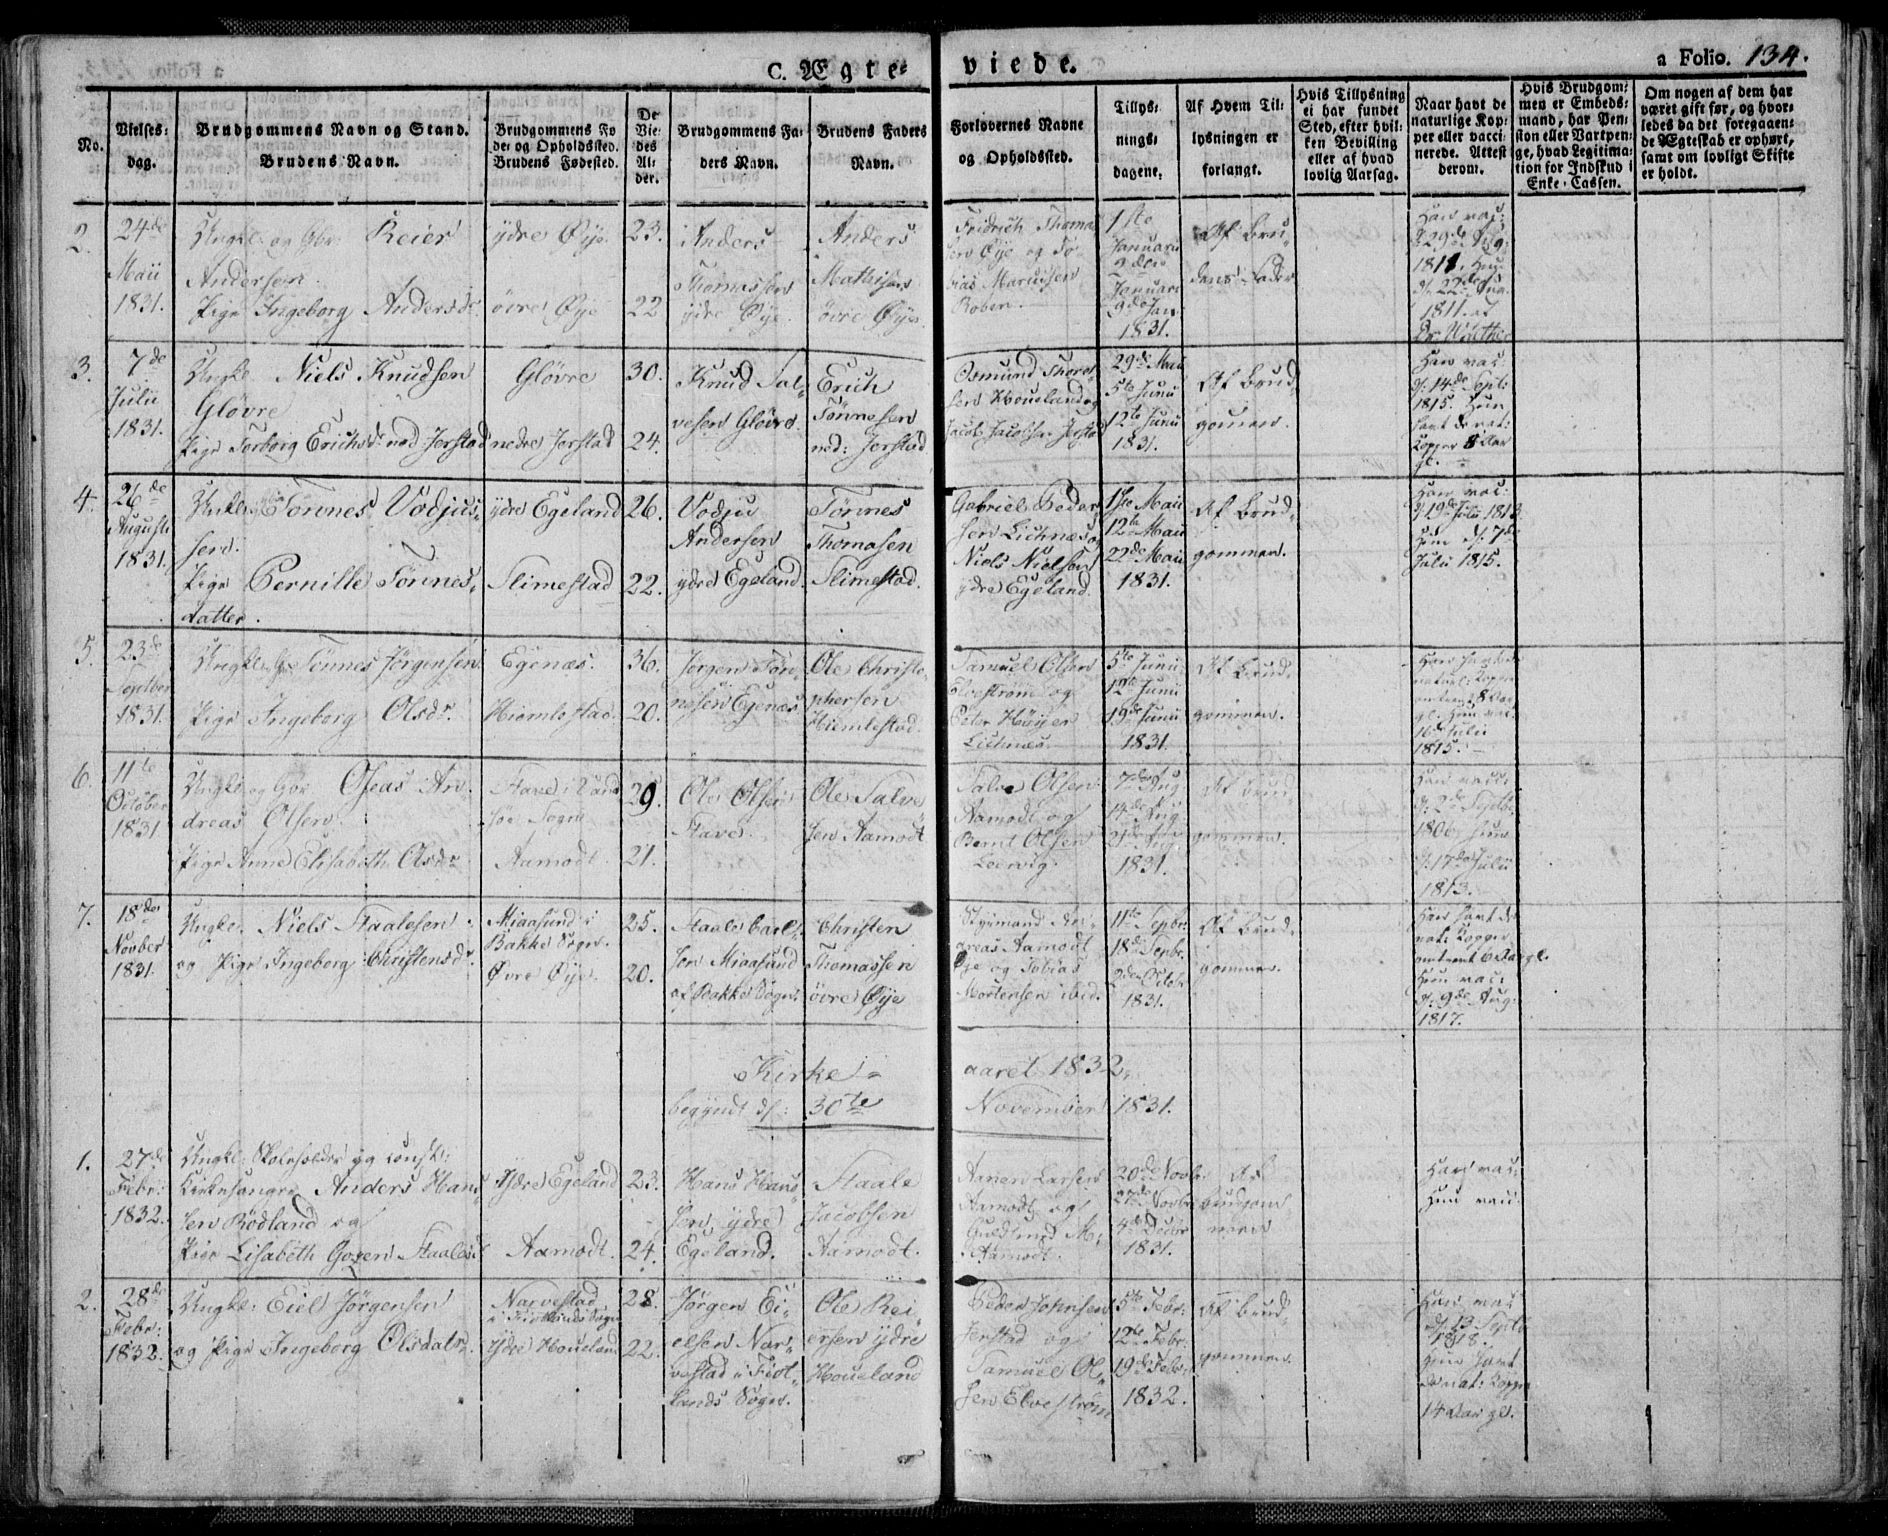 C. Ægte=
viede.
a Folio. 134.
No.
Vielses=
dag.
Brudgommens Navn og Stand.
Brudens Navn.
Brudgommens Fø
de= og Opholdssted.
Brudens Fødested.
De
Vie=
des
Al=
der.
Brudgommens Fa=
ders Navn.
Brudens Faders
Navn.
Forlovernes Navne
og Opholdssted.
Tillys=
nings=
dagene.
Af Hvem Til=
lysningen er
forlangt.
Hvis Tillysning
ei har fundet
Sted, efter hvil=
ken Bevilling
eller af hvad
lovlig Aarsag.
Naar havt de
naturlige Kop=
per eller vacci=
nerede. Attest
derom.
Hvis Brudgom=
men er Embeds=
mand, har Pen=
sion eller Vartpen=
ge, hvad Legitima=
tion for Indskud i
Enke=Cassen.
Om nogen af dem har
været gift før, og hvor=
ledes da det foregaaen=
de Ægteskab er ophørt,
samt om lovligt Skifte
er holdt.
2.
24de
Maii
1831.
Ungk: og Gbr. Reier
Andersen
Pige Ingeborg Andersdr
ydre Øye
øvre Øye
23.
22
Anders
Thomassen
ydre Øye.
Anders
Mathisen
øvre Øye.
Fridrich Thoma
sen Øye og To=
bias Mariusen
Roben.
1ste
Januarii
2den
Januarii
9de Jan
1831.
Af Bru=
dens Fader
Han vac:
d: 29de Aug:
1811. Hun
d: 22de Aug.
1811. af
Dr. Wuther
3.
7de
Julii
1831.
Ungk. Niels Knudsen
Gløvre
Pige Torborg Erichsdr ned Jerstad
Gløvre
nedre Jerstad
30.
24.
Knud Sal=
vesen Gløvre.
Erich
Tønnesen
ned: Jerstad
Osmund Thorel
sen Houeland og
Jacob Jacobsen Jerstad
29de Maii
5te Junii
12te Junii
1831.
Af Brud=
gomen.
Han vac
d: 14de Sept:
1815. Hun
havt de nat:
Kopper 8 Aar
gl.
4.
26de
Augusti
1831.
Ungk. Tønnes Vodjus=
sen.
Pige Pernille Tønnes=
datter.
ydre Egeland
Slimestad
26.
22.
Vodjus
Andersen
ydre Egeland.
Tønnes
Thomasen
Slimestad.
Gabriel Peder=
sen Lichnæs og
Niels Nielsen
ydre Egeland.
1ste Maii
12te Maii
22de Maii
1831.
Af Brud=
gommen.
Han vac:
d: 19de Julii 1813
Hun d: 7de
Julii 1815.
5.
23de
Septbr
1831.
Ungk. og Gbr Tønnes Jørgensen
Pige Ingeborg Olsdr.
Egenæs.
Hiemlestad.
36.
20.
Jørgen Tøn=
nesen Egenæs
Ole Christo=
phersen
Hiemlestad.
Samuel Olsen
Elvestrøm og
Peter Høyer
Lichnæs.
5te Junii
12te Junii
19de Junii
1831.
Af Brud=
gommen.
Han havt de
naturl: Kopper
omtrent 8 Aar
gl. Hun vac:
16de Julii
1815.
6.
11te
October
1831
Ungk: og Gbr Oseas An=
dreas Olsen
Pige Anne Elisabeth Olsdr
Stave i Vand
søe Sogn
Aamodt.
29.
21.
Ole Olsen
Stave.
Ole Salve
sen Aamodt
Salve Olsen
Aamodt og
Bernt Olsen
Leervig.
7de Aug
14de Aug
21de Aug.
1831.
Af Brud
gommen.
Han vac:
d: 2de Septbr
1806. Hun
d: 17de Julii
1813.
7.
18de
Novber
1831.
Ungk. Niels Staalesen
og Pige Ingeborg Christensdr.
Miaasund i
Bakke Sogn.
Øvre Øye.
25.
20.
Staale Carl=
sen Miaasund
af Bakke Sogn.
Christen
Thomassen
øvre Øye
Styrmand An=
dreas Aamodt
Øye og Tobias
Mortensen ibid.
11te Sepbr.
18de Sepbr.
2den Octbr.
1831.
Af Brud=
gommen.
Han havt de
nat: Kopper
omtrent 6 Aar gl.
Hun vac:
d: 9de Aug:
1817.
Kirke=
aaret 1832,
begyndt d: 30te
November 1831.
1.
27de
Febr:
1832.
Ungk: Skoleholder og const:
Kirkesanger Anders Hans
sen Rødland og
Pige Lisabeth Goren Staalesdr
Ydre Egeland
Aamodt.
23.
24.
Hans Hans
sen ydre
Egeland.
Staale
Jacobsen
Aamodt.
Aanen Larsen
Aamodt og
Guldmund M:
Aamodt.
20de Novbr:
27de Novbr
4de Decbr
1831.
Af
Brudgom=
men
Han vac:
Hun vac.
2.
28de
Febr:
1832.
Ungk: Eiel Jørgensen
og Pige Ingeborg Olsdatr.
Narvestad
i Fiotlands Sogn
Ydre Houeland
28.
22.
Jørgen Ei=
elsen Nar=
vestad i Fiot=
lands Sogn.
Ole Rei=
ersen ydre
Houeland
Peder Johnsen
Jerstad og
Samuel Ol=
sen Elvestrøm
5te Febr:
12te Febr:
19de Febr:
1832.
Af Brud=
gommen.
Han vac
d: 13 Septb
1818.
Hun havt
de nat: Kopper
14 Aar gl.